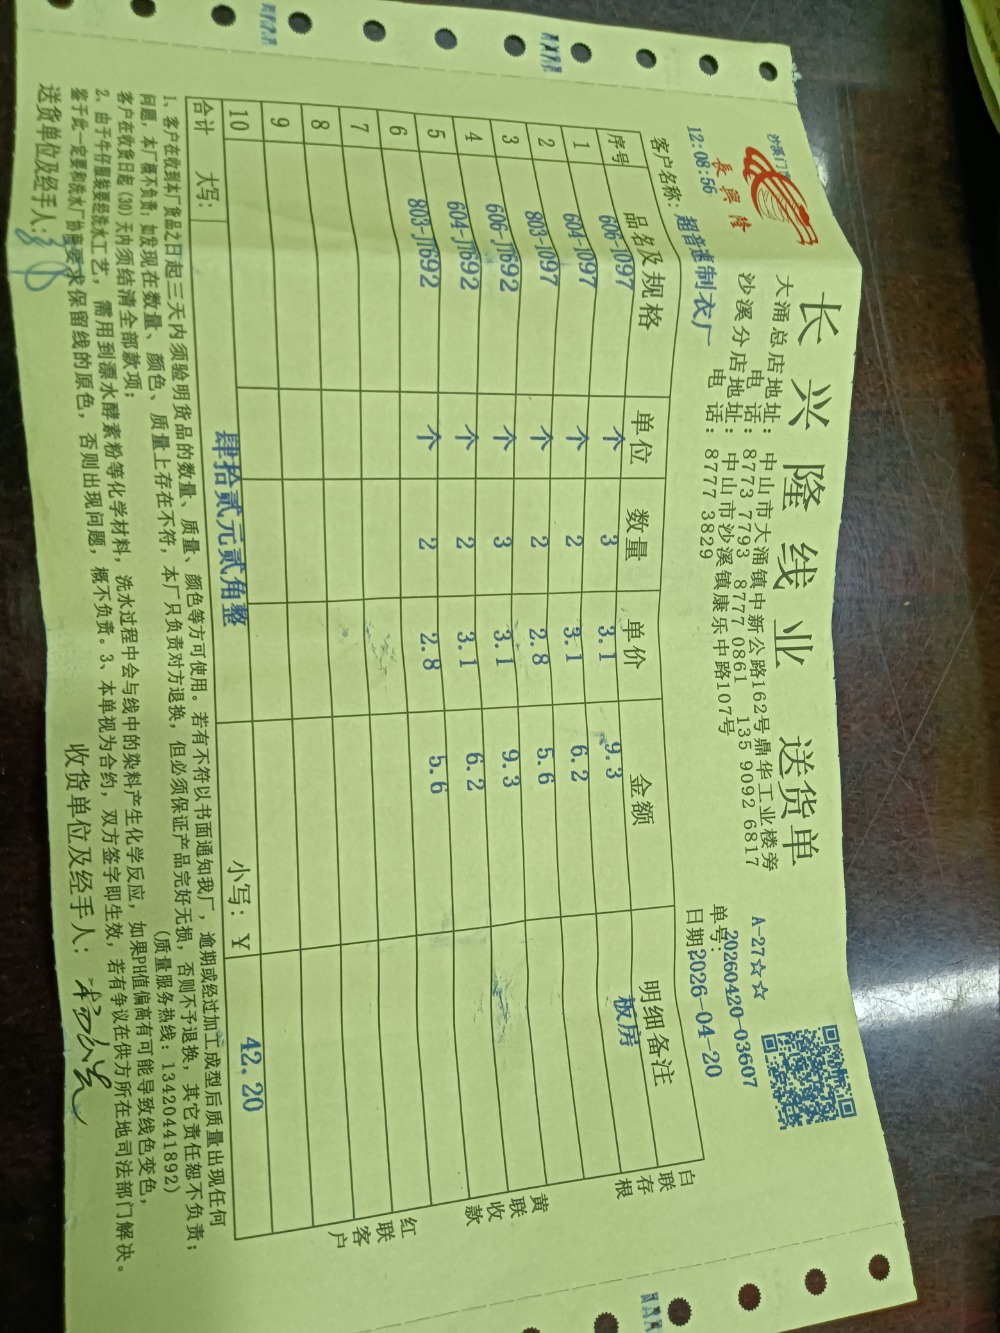 长兴隆线业 送货单
長興隆
12:08:56
大涌总店地址：中山市大涌镇中新公路162号鼎华工业楼旁
电话：8773 7793 8777 0861 135 9092 6817
沙溪分店地址：中山市沙溪镇康乐中路107号
电话：8777 3829
A-27☆☆
单号：20260420-03607
日期：2026-04-20
客户名称：超音速制衣厂
序号 品名及规格 单位 数量 单价 金额 明细备注
1 606-J097 个 3 3.1 9.3 板房
2 604-J097 个 2 3.1 6.2
3 803-J097 个 2 2.8 5.6
4 606-JT692 个 3 3.1 9.3
5 604-JT692 个 2 3.1 6.2
6 803-JT692 个 2 2.8 5.6
7
8
9
10
合计 大写：肆拾贰元贰角整 小写：¥ 42.20
白联存根
黄联收款
红联客户
1、客户在收到本厂货品之日起三天内须验明货品的数量、质量、颜色等方可使用。若有不符以书面通知我厂，逾期或经过加工成型后质量出现任何
问题，本厂概不负责；如发现在数量、颜色、质量上存在不符，本厂只负责对方退换，但必须保证产品完好无损，否则不予退换，其它责任恕不负责；
客户在收货日起(30)天内须结清全部款项； (质量服务热线：13420441892)
2、由于牛仔服装要经洗水工艺，需用到漂水酵素粉等化学材料，洗水过程中会与线中的染料产生化学反应，如果PH值偏高有可能导致线色变色，
鉴于此一定要和洗水厂协商要求保留线的原色，否则出现问题，概不负责。3、本单视为合约，双方签字即生效，若有争议在供方所在地司法部门解决。
送货单位及经手人： 收货单位及经手人：